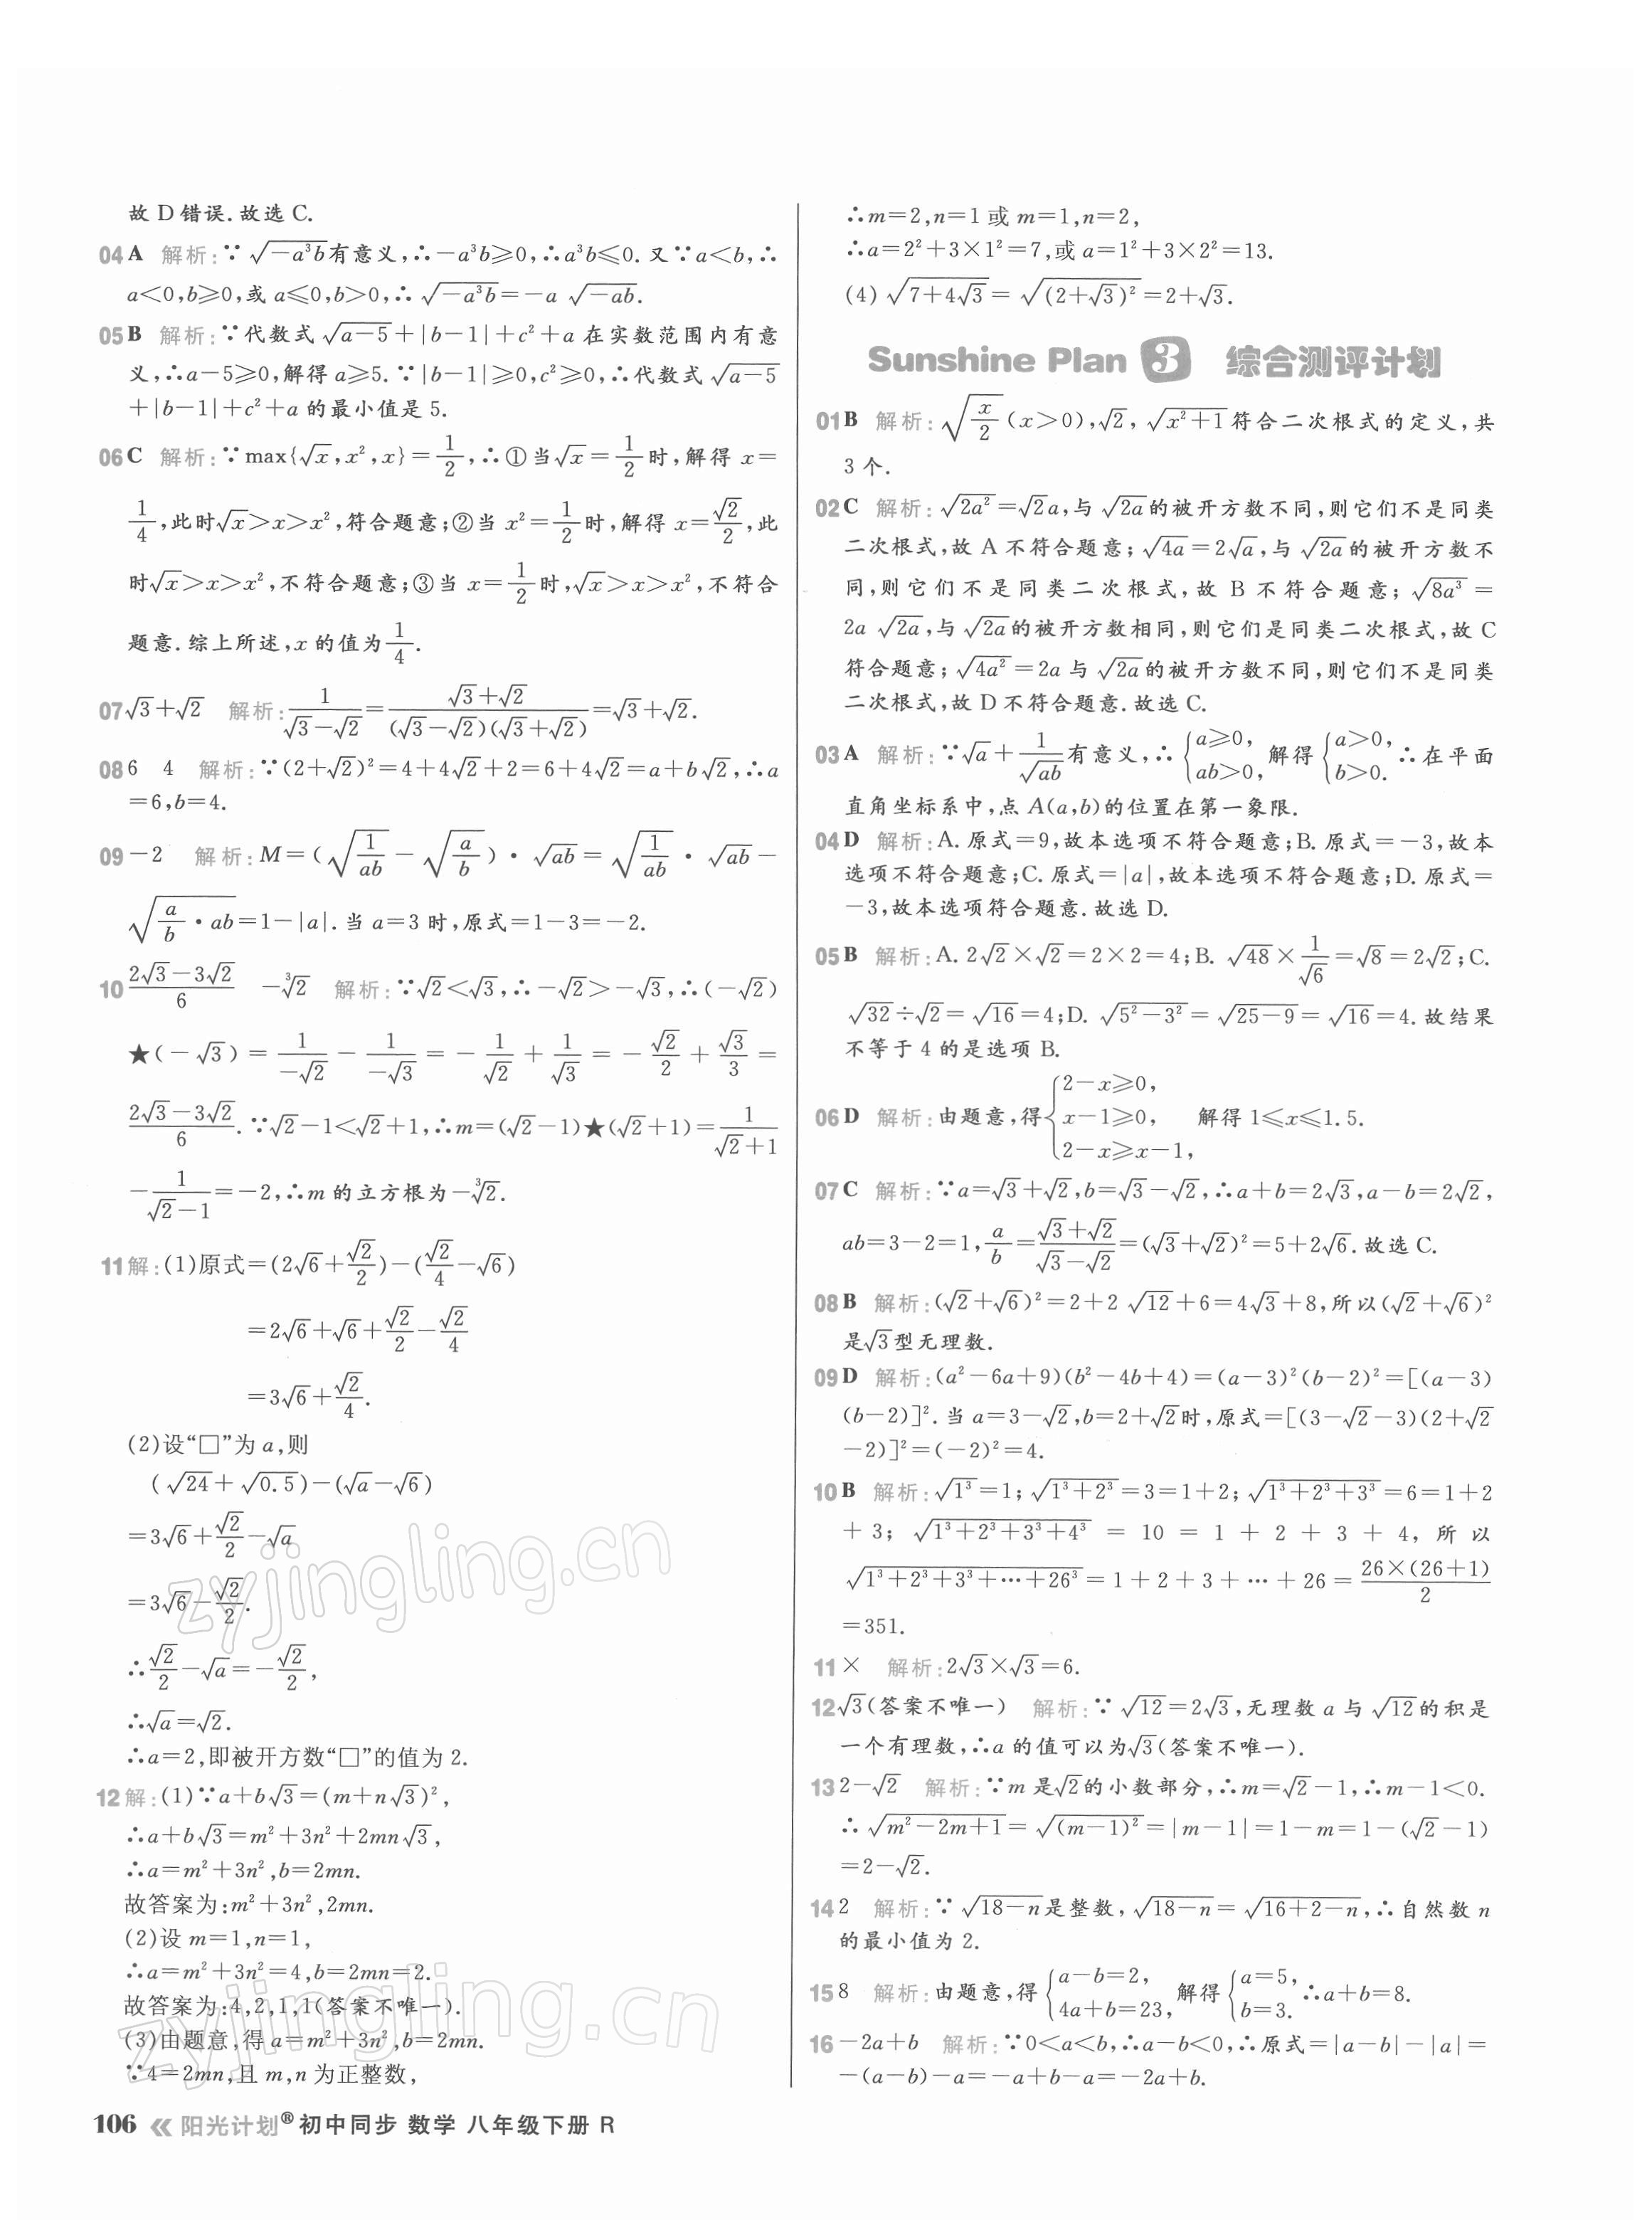 故 D 错误.故选 C.
04 A 解析:∵ √(-a³b)有意义,∴-a³b≥0,∴a³b≤0.又∵a<b,∴
a<0,b≥0,或 a≤0,b>0,∴ √(-a³b)=-a √(-ab).
05 B 解析:∵代数式 √(a-5)+|b-1|+c²+a 在实数范围内有意
义,∴a-5≥0,解得 a≥5.∵|b-1|≥0,c²≥0,∴代数式 √(a-5)
+|b-1|+c²+a 的最小值是 5.
06 C 解析:∵max{√x,x²,x}=1/2,∴①当√x=1/2时,解得 x=
1/4,此时√x>x>x²,符合题意;②当 x²=1/2时,解得 x=√2/2,此
时√x>x>x²,不符合题意;③当 x=1/2时,√x>x>x²,不符合
题意.综上所述,x 的值为1/4.
07 √3+√2 解析:1/(√3-√2)=(√3+√2)/((√3-√2)(√3+√2))=√3+√2.
08 6 4 解析:∵(2+√2)²=4+4√2+2=6+4√2=a+b√2,∴a
=6,b=4.
09 -2 解析:M=(√(1/ab)-√(a/b))·√ab=√(1/ab)·√ab-
√(a/b·ab)=1-|a|.当 a=3 时,原式=1-3=-2.
10 (2√3-3√2)/6 -∛2 解析:∵√2<√3,∴-√2>-√3,∴(-√2)
★(-√3)=1/(-√2)-1/(-√3)=-1/√2+1/√3=-√2/2+√3/3=
(2√3-3√2)/6.∵√2-1<√2+1,∴m=(√2-1)★(√2+1)=1/(√2+1)
-1/(√2-1)=-2,∴m 的立方根为-∛2.
11 解:(1)原式=(2√6+√2/2)-(√2/4-√6)
=2√6+√6+√2/2-√2/4
=3√6+√2/4.
(2)设“□”为 a,则
(√24+√0.5)-(√a-√6)
=3√6+√2/2-√a
=3√6-√2/2.
∴√2/2-√a=-√2/2,
∴√a=√2.
∴a=2,即被开方数“□”的值为 2.
12 解:(1)∵a+b√3=(m+n√3)²,
∴a+b√3=m²+3n²+2mn√3,
∴a=m²+3n²,b=2mn.
故答案为:m²+3n²,2mn.
(2)设 m=1,n=1,
∴a=m²+3n²=4,b=2mn=2.
故答案为:4,2,1,1(答案不唯一).
(3)由题意,得 a=m²+3n²,b=2mn.
∵4=2mn,且 m,n 为正整数,
∴m=2,n=1 或 m=1,n=2,
∴a=2²+3×1²=7,或 a=1²+3×2²=13.
(4) √(7+4√3)=√((2+√3)²)=2+√3.
Sunshine Plan 3 综合测评计划
01 B 解析:√(x/2)(x>0),√2,√(x²+1)符合二次根式的定义,共
3 个.
02 C 解析:√(2a²)=√2a,与 √(2a)的被开方数不同,则它们不是同类
二次根式,故 A 不符合题意;√(4a)=2√a,与 √(2a)的被开方数不
同,则它们不是同类二次根式,故 B 不符合题意;√(8a³)=
2a √(2a),与 √(2a)的被开方数相同,则它们是同类二次根式,故 C
符合题意;√(4a²)=2a 与 √(2a)的被开方数不同,则它们不是同类
二次根式,故 D 不符合题意.故选 C.
03 A 解析:∵√a+1/√(ab)有意义,∴{a≥0,ab>0,解得{a>0,b>0.∴在平面
直角坐标系中,点 A(a,b)的位置在第一象限.
04 D 解析:A.原式=9,故本选项不符合题意;B.原式=-3,故本
选项不符合题意;C.原式=|a|,故本选项不符合题意;D.原式=
-3,故本选项符合题意.故选 D.
05 B 解析:A. 2√2×√2=2×2=4;B. √48×1/√6=√8=2√2;C.
√32÷√2=√16=4;D. √(5²-3²)=√(25-9)=√16=4.故结果
不等于 4 的是选项 B.
06 D 解析:由题意,得{2-x≥0,x-1≥0,2-x≥x-1, 解得 1≤x≤1.5.
07 C 解析:∵a=√3+√2,b=√3-√2,∴a+b=2√3,a-b=2√2,
ab=3-2=1,a/b=(√3+√2)/(√3-√2)=(√3+√2)²=5+2√6.故选 C.
08 B 解析:(√2+√6)²=2+2 √12+6=4√3+8,所以(√2+√6)²
是√3型无理数.
09 D 解析:(a²-6a+9)(b²-4b+4)=(a-3)²(b-2)²=[(a-3)
(b-2)]².当 a=3-√2,b=2+√2时,原式=[(3-√2-3)(2+√2
-2)]²=(-2)²=4.
10 B 解析:√(1³)=1;√(1³+2³)=3=1+2;√(1³+2³+3³)=6=1+2
+3;√(1³+2³+3³+4³)=10=1+2+3+4,所以
√(1³+2³+3³+⋯+26³)=1+2+3+⋯+26=26×(26+1)/2
=351.
11 × 解析:2√3×√3=6.
12 √3(答案不唯一) 解析:∵ √12=2√3,无理数 a 与 √12的积是
一个有理数,∴a 的值可以为√3(答案不唯一).
13 2-√2 解析:∵m 是√2的小数部分,∴m=√2-1,∴m-1<0.
∴√(m²-2m+1)=√((m-1)²)=|m-1|=1-m=1-(√2-1)
=2-√2.
14 2 解析:∵ √(18-n)是整数,√(18-n)=√(16+2-n),∴自然数 n
的最小值为 2.
15 8 解析:由题意,得{a-b=2,4a+b=23,解得{a=5,b=3.∴a+b=8.
16 -2a+b 解析:∵0<a<b,∴a-b<0,∴原式=|a-b|-|a|=
-(a-b)-a=-a+b-a=-2a+b.
zyjingling.cn
zyjingling.cn
106 《 阳光计划® 初中同步 数学 八年级下册 R